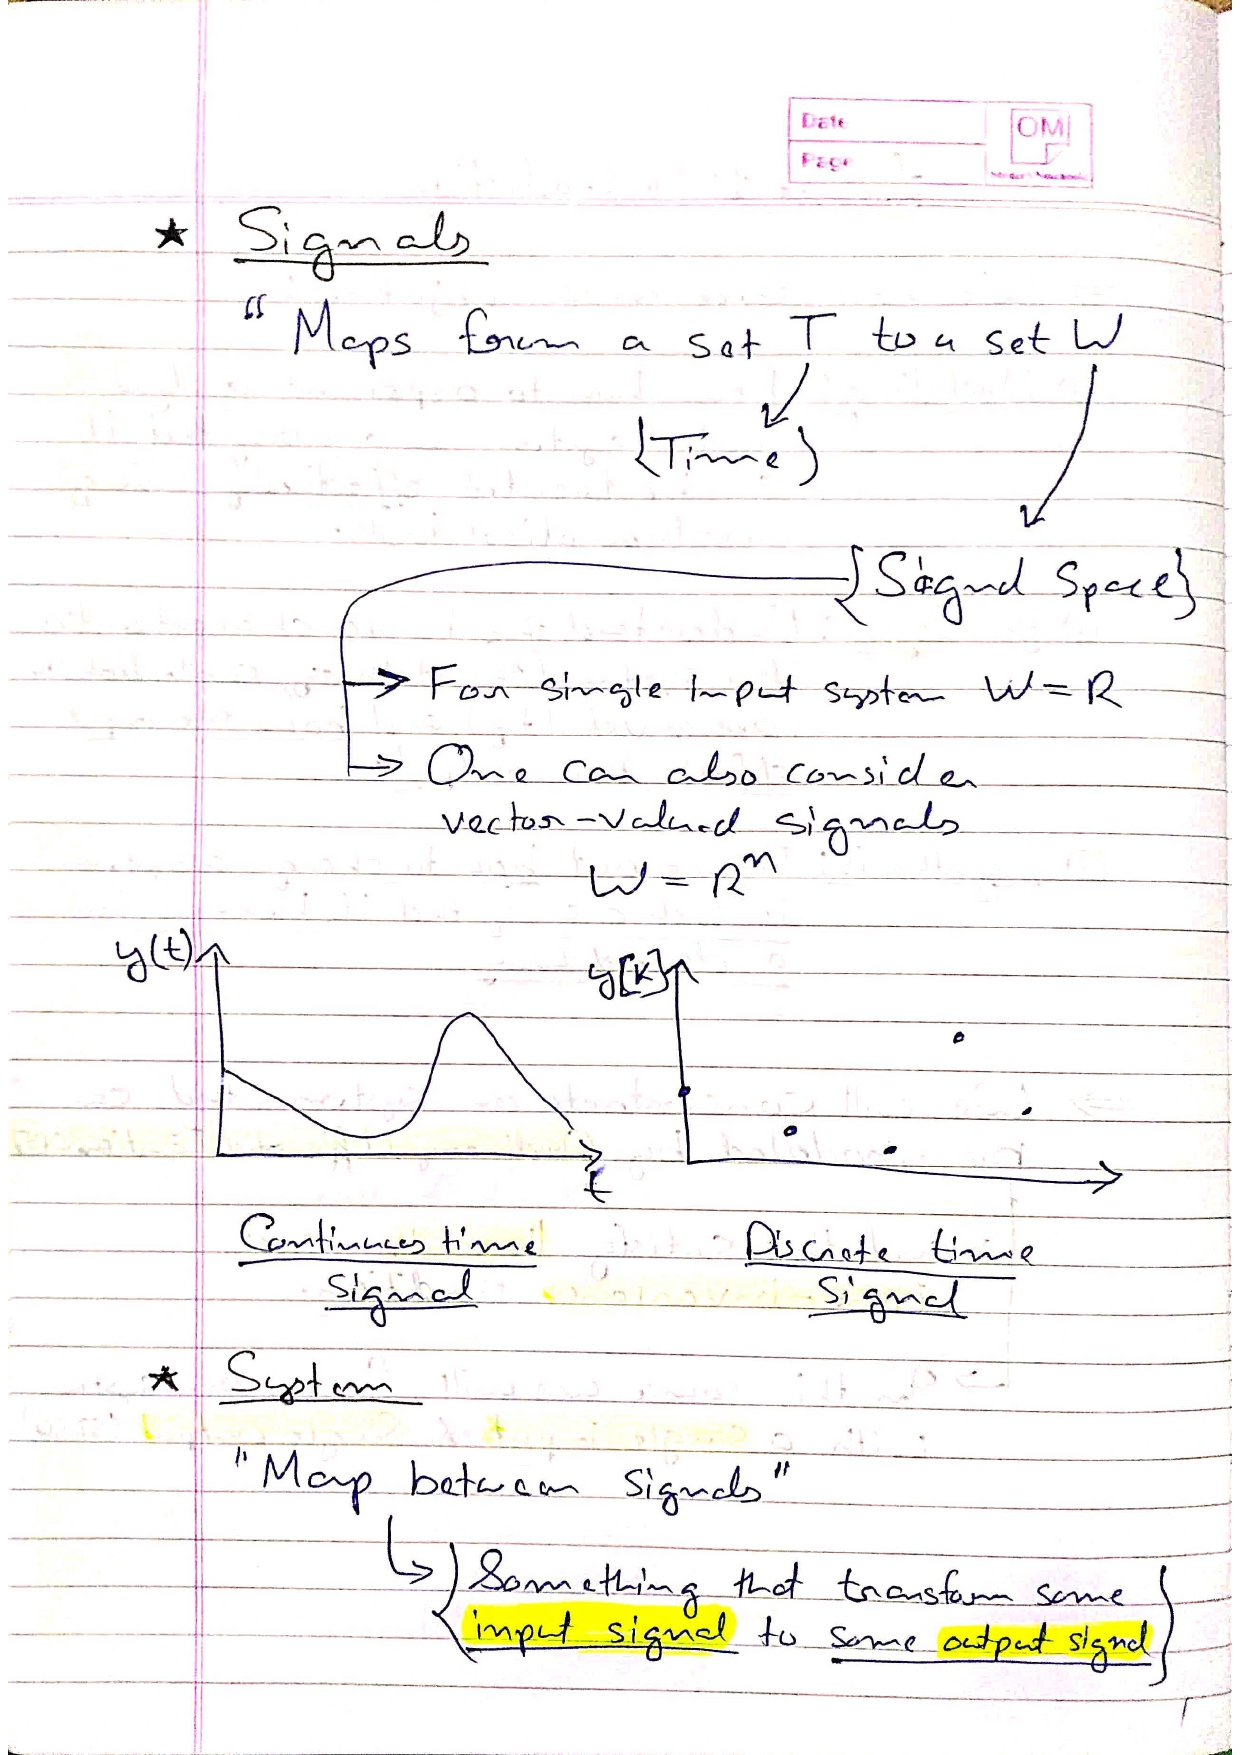 Date
OM
Page
★ Signals
“ Maps from a set T to a set W
{Time}
{Signal Space}
→ For single input system W = R
→ One can also consider
vector-valued signals
W = Rⁿ
y(t)
y[k]
t
Continuous time
signal
Discrete time
signal
★ System
"Map between signals"
{Something that transform some
input signal to some output signal}
1